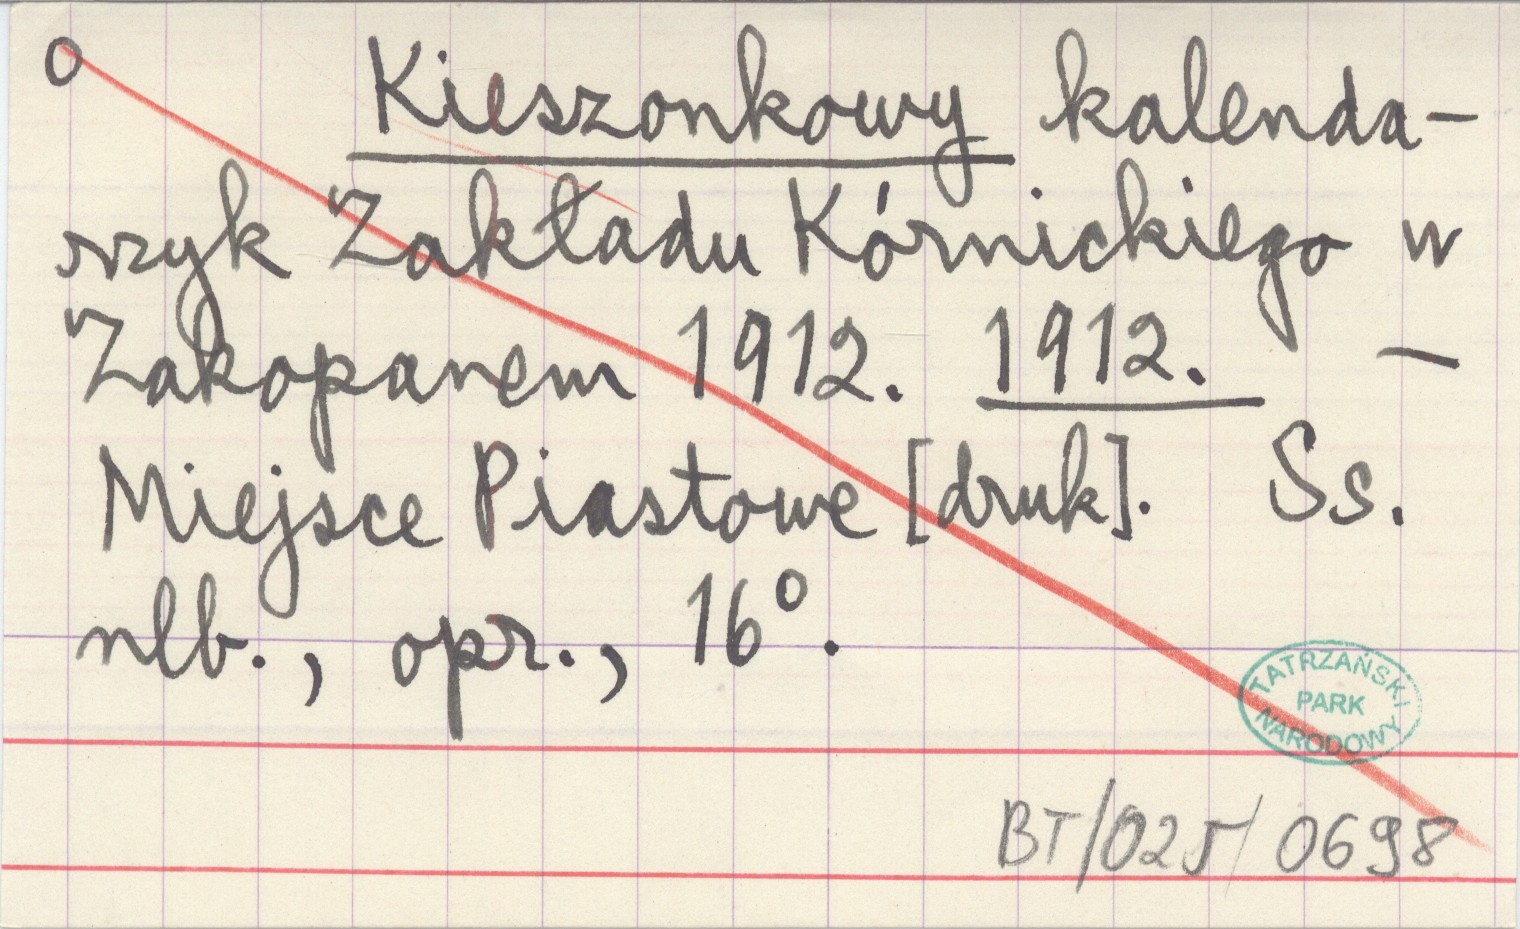 O Kieszonkowy kalenda-
rzyk Zakładu Kórnickiego w
Zakopanem 1912. 1912. —
Miejsce Piastowe [druk]. Ss.
nlb., opr., 16°.
TATRZAŃSKI
PARK
NARODOWY
BT/025/0698